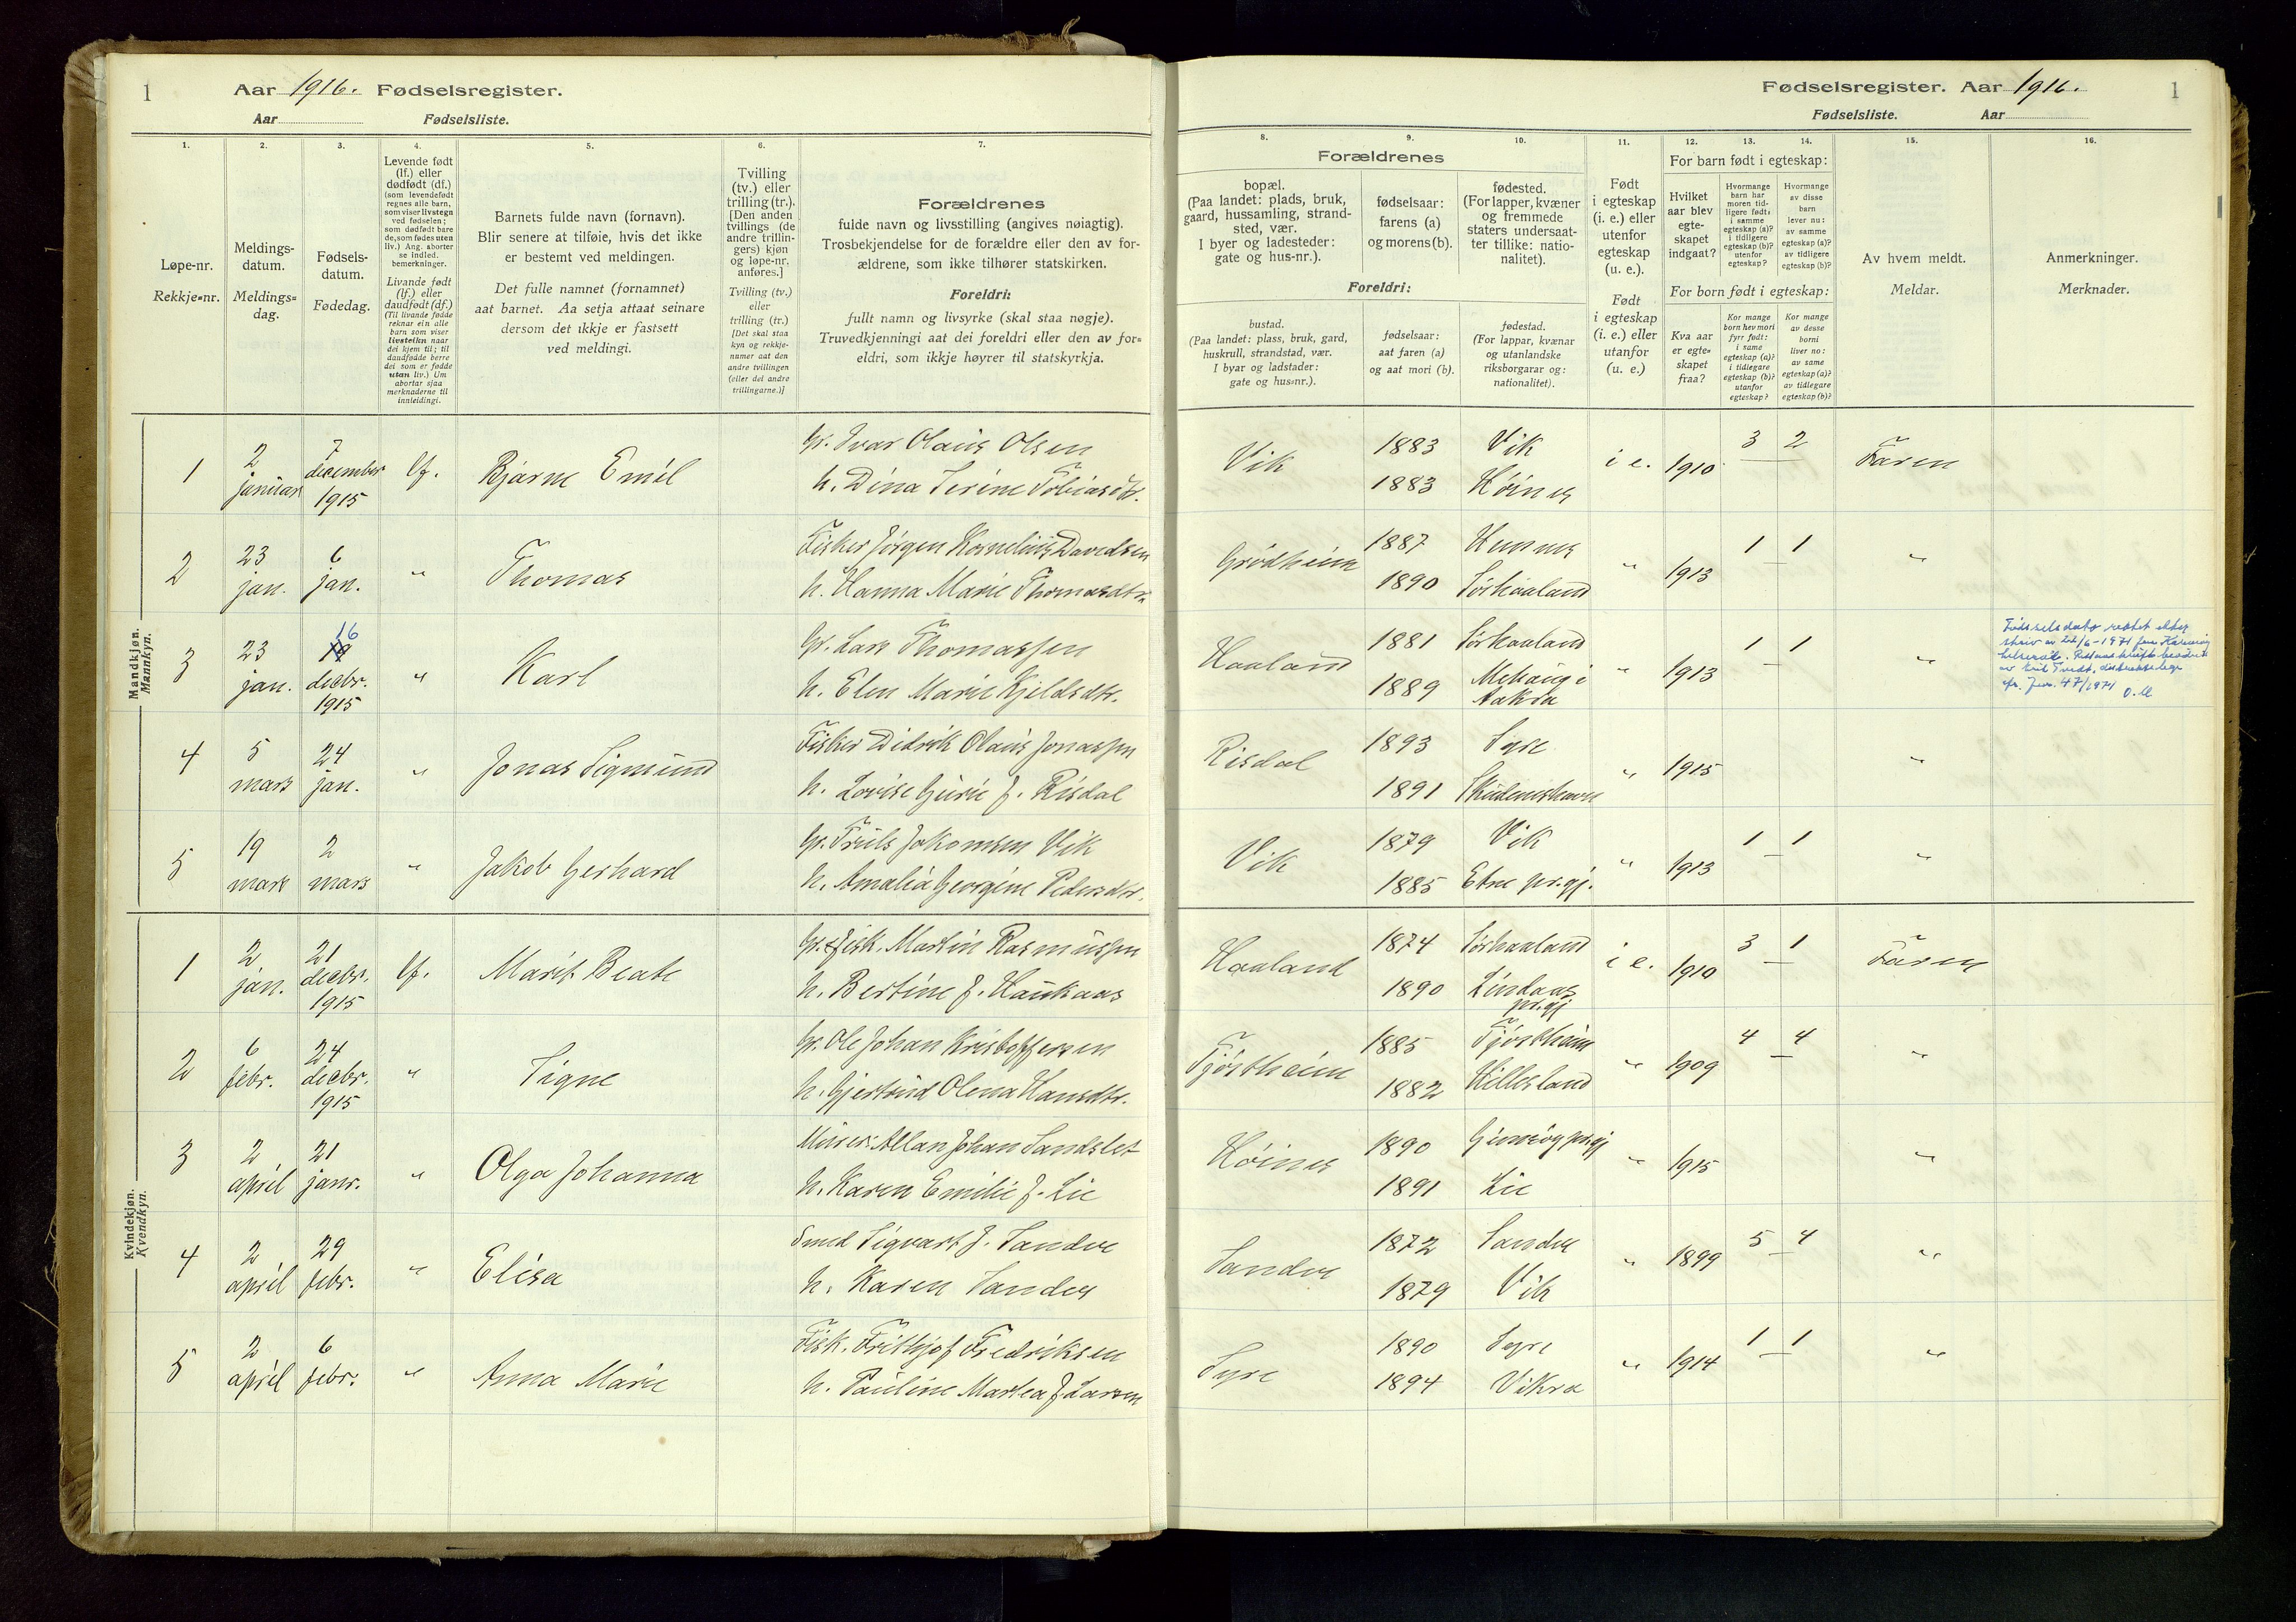 1
Aar 1916. Fødselsregister.
Aar Fødselsliste.
Fødselsregister. Aar 1916.
1
Fødselsliste. Aar
1. 2. 3. 4. 5. 6. 7.
Løpe-nr.
Rekkje=nr.
Meldings-
datum.
Meldings=
dag.
Fødsels-
datum.
Fødedag.
Levende født
(lf.) eller
dødfødt (df.)
(som levendefødt
regnes alle barn,
som viser livstegn
ved fødselen;
som dødfødt bare
de, som fødes uten
liv.) Ang. aborter
se indled.
bemerkninger.
Livande født
(lf.) eller
daudfødt (df.)
(Til livande fødde
reknar ein alle
barn som viser
livsteikn naar
dei kjem til; til
daudfødde berre
dei som er fødde
utan liv.) Um
abortar sjaa
merknaderne til
innleidingi.
Barnets fulde navn (fornavn).
Blir senere at tilføie, hvis det ikke
er bestemt ved meldingen.
Det fulle namnet (fornamnet)
aat barnet. Aa setja attaat seinare
dersom det ikkje er fastsett
ved meldingi.
Tvilling
(tv.) eller
trilling (tr.).
[Den anden
tvillings (de
andre trillin-
gers) kjøn
og løpe-nr.
anføres.]
Tvilling (tv.)
eller
trilling (tr.)
[Det skal staa
kyn og rekkje-
numer aat den
andre tvillingen
(eller dei andre
trillingarne.)]
Forældrenes
fulde navn og livsstilling (angives nøiagtig).
Trosbekjendelse for de forældre eller den av for-
ældrene, som ikke tilhører statskirken.
Foreldri:
fullt namn og livsyrke (skal staa nøgje).
Truvedkjenningi aat dei foreldri eller den av for=
eldri, som ikkje høyrer til statskyrkja.
8. 9. 10. 11. 12. 13. 14. 15. 16.
Forældrenes
bopæl.
(Paa landet: plads, bruk,
gaard, hussamling, strand-
sted, vær.
I byer og ladesteder:
gate og hus-nr.).
fødselsaar:
farens (a)
og morens (b).
fødested.
(For lapper, kvæner
og fremmede
staters undersaat-
ter tillike: natio-
nalitet).
Foreldri:
bustad.
(Paa landet: plass, bruk, gard,
huskrull, strandstad, vær.
I byar og ladstader:
gate og hus=nr.).
fødselsaar:
aat faren (a)
og aat mori (b).
fødestad.
(For lappar, kvænar
og utanlandske
riksborgarar og:
nationalitet).
Født
i egteskap
(i. e.) eller
utenfor
egteskap
(u. e.).
Født
i egteskap
(i. e.) eller
utanfor
egteskap
(u. e.)
For barn født i egteskap:
Hvilket
aar blev
egte-
skapet
indgaat?
Hvormange
barn har
moren tid-
ligere født:
i samme
egteskap (a)?
i tidligere
egteskap (b)?
utenfor
egteskap?
Hvormange
av disse
barn
lever nu:
av samme
egteskap (a)?
av tidligere
egteskap (b)?
For born født i egteskap:
Kva aar
er egte=
skapet
fraa?
Kor mange
born hev mori
fyrr født:
i same
egteskap (a)?
i tidlegare
egteskap (b)?
utanfor
egteskap?
Kor mange
av desse
borni
liver no:
av same
egteskap (a)?
av tidlegare
egteskap (b)?
Av hvem meldt.
Meldar.
Anmerkninger.
Merknader.
Mandkjøn.
Mannkyn.
1 2 januar 7 december 1915 lf. Bjarne Emil
Gr. Ivar Olaus Olsen
h. Dina Serine Tobiasdtr.
Vik 1883 Vik i e. 1910 3 2 Faren
1883 Høines
2 23 jan. 6 jan. " Thomas
Fisker Jørgen Kornelius Davidsen
h. Hanna Marie Thomasdtr.
Grødheim 1887 Hemnes " 1913 1 1 "
1890 Sørhaaland
3 23 jan. 16 decbr. 1915 " Karl
Gr. Lars Thomassen
h. Elen Marie Kjeldsdtr.
Haaland 1881 Sørhaaland " 1913 1 1 "
1889 Mehaug i Aakra
Fødselsdato rettet etter
skriv av 22/6-1971 fra Karmøy
helseråd.
jnr. 47/1971 O.M
4 5 mars 24 jan. " Jonas Sigmund
Fisker Didrik Olaus Jonassen
h. Lovise Gurie J. Risdal
Risdal 1893 Syre " 1915 "
1891 Skudeneshavn
5 19 mars 2 mars " Jakob Gerhard
Gr. Truls Jakobsen Vik
h. Amalia Georgine Pedersdtr.
Vik 1879 Vik " 1913 1 1 "
1885 Etne pr.gj.
Kvindekjøn.
Kvendkyn.
1 2 jan. 21 decbr. 1915 lf. Marit Beate
Gr. & fisk. Martin Rasmussen
h. Bertine J. Haukaas
Haaland 1874 Sørhaaland i e. 1910 3 1 Faren
1890 Lindaas pr.gj
2 6 febr. 24 decbr. 1915 " Signe
Gr. Ole Johan Kristoffersen
h. Gjertrud Olena Hansdtr.
Tjøstheim 1885 Tjøstheim " 1909 4 4 "
1882 Hillesland
3 2 april 21 janr. " Olga Johanna
Murer Allan Johan Sandslet
h. Karen Emilie J. Lie
Høines 1890 pr.gj " 1915 "
1891 Lie
4 2 april 29 febr. " Elisa
Smed Sigvart J. Sandve
h. Karen Sandve
Sandve 1872 Sandve " 1899 5 4 "
1879 Vik
5 2 april 6 febr. " Anna Marie
Fisk. Frithjof Fredriksen
h. Pauline Martea J. Larsen
Syre 1890 Syre " 1914 1 1 "
1894 Vikra